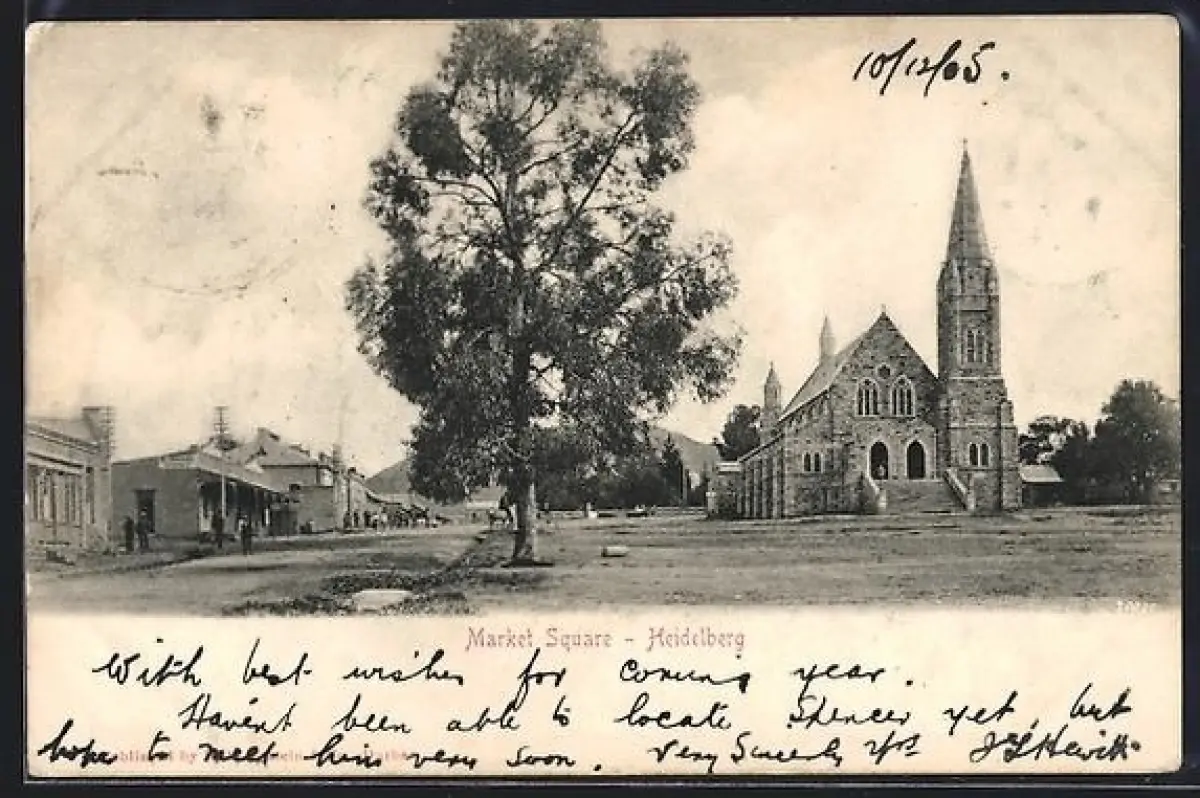 10/12/05.
Market Square - Heidelberg
With best wishes for coming year.
Havent been able to locate Spencer yet, but
hope to meet him very soon. Very Sincerely Yrs Hewitt
Published by